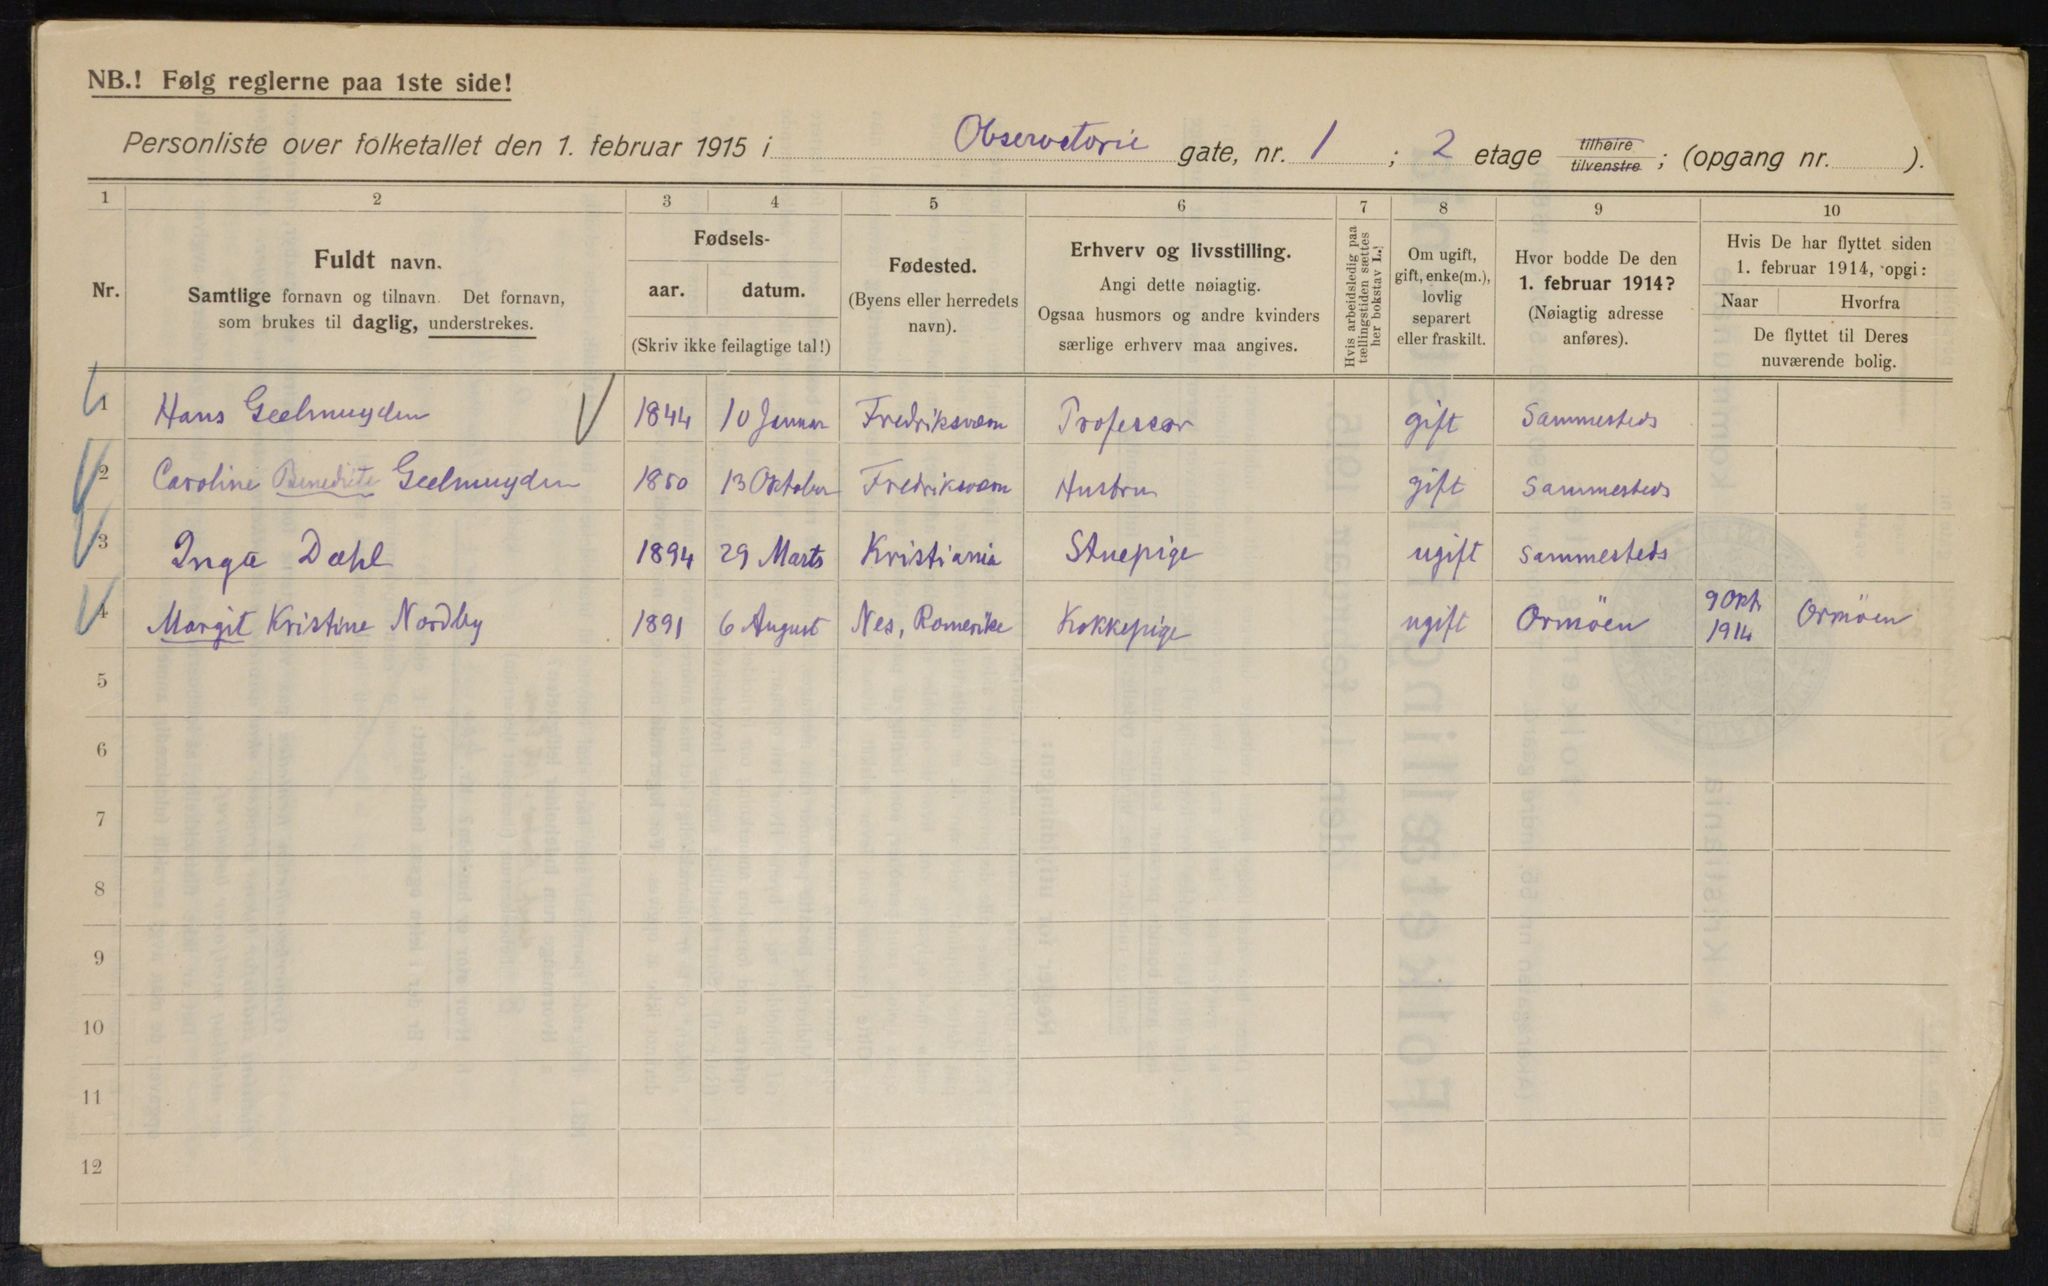 NB.! Følg reglerne paa 1ste side!
Personliste over folketallet den 1. februar 1915 i Observatorie gate, nr. 1 ; 2 etage tilhøire tilvenstre ; (opgang nr. ).
1 2 3 4 5 6 7 8 9 10
Nr.
Fuldt navn.
Samtlige fornavn og tilnavn. Det fornavn,
som brukes til daglig, understrekes.
Fødsels-
aar. datum.
(Skriv ikke feilagtige tal!)
Fødested.
(Byens eller herredets
navn).
Erhverv og livsstilling.
Angi dette nøiagtig.
Ogsaa husmors og andre kvinders
særlige erhverv maa angives.
Hvis arbeidsledig paa
tællingstiden sættes
her bokstav L.!
Om ugift,
gift, enke(m.),
lovlig
separert
eller fraskilt.
Hvor bodde De den
1. februar 1914?
(Nøiagtig adresse
anføres).
Hvis De har flyttet siden
1. februar 1914, opgi:
Naar Hvorfra
De flyttet til Deres
nuværende bolig.
1 Hans Geelmuyden 1844 10 Januar Fredriksværn Professor gift Sammesteds
2 Caroline Benedicte Geelmuyden 1850 13 Oktober Fredriksværn Hustru gift Sammesteds
3 Inga Dæhl 1894 29 Marts Kristiania Stuepige ugift Sammesteds
4 Margit Kristine Nordby 1891 6 August Nes, Romerike Kokkepige ugift Ormöen 9 Okt. 1914 Ormöen
5
6
7
8
9
10
11
12